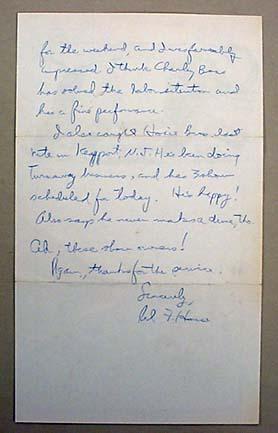 for the weekend, and I was favorably
impressed. I think Charley Bros
has solved the labor situation and
has a fine performance.
I also caught Hoxie Bros. last
nite in Keyport, N.J. Has been doing
turnaway business, and has 3 shows
scheduled for today. He's happy!
Also says he never makes a dime, tho.
Ah, these show owners!
Again, thanks for the service.
Sincerely,